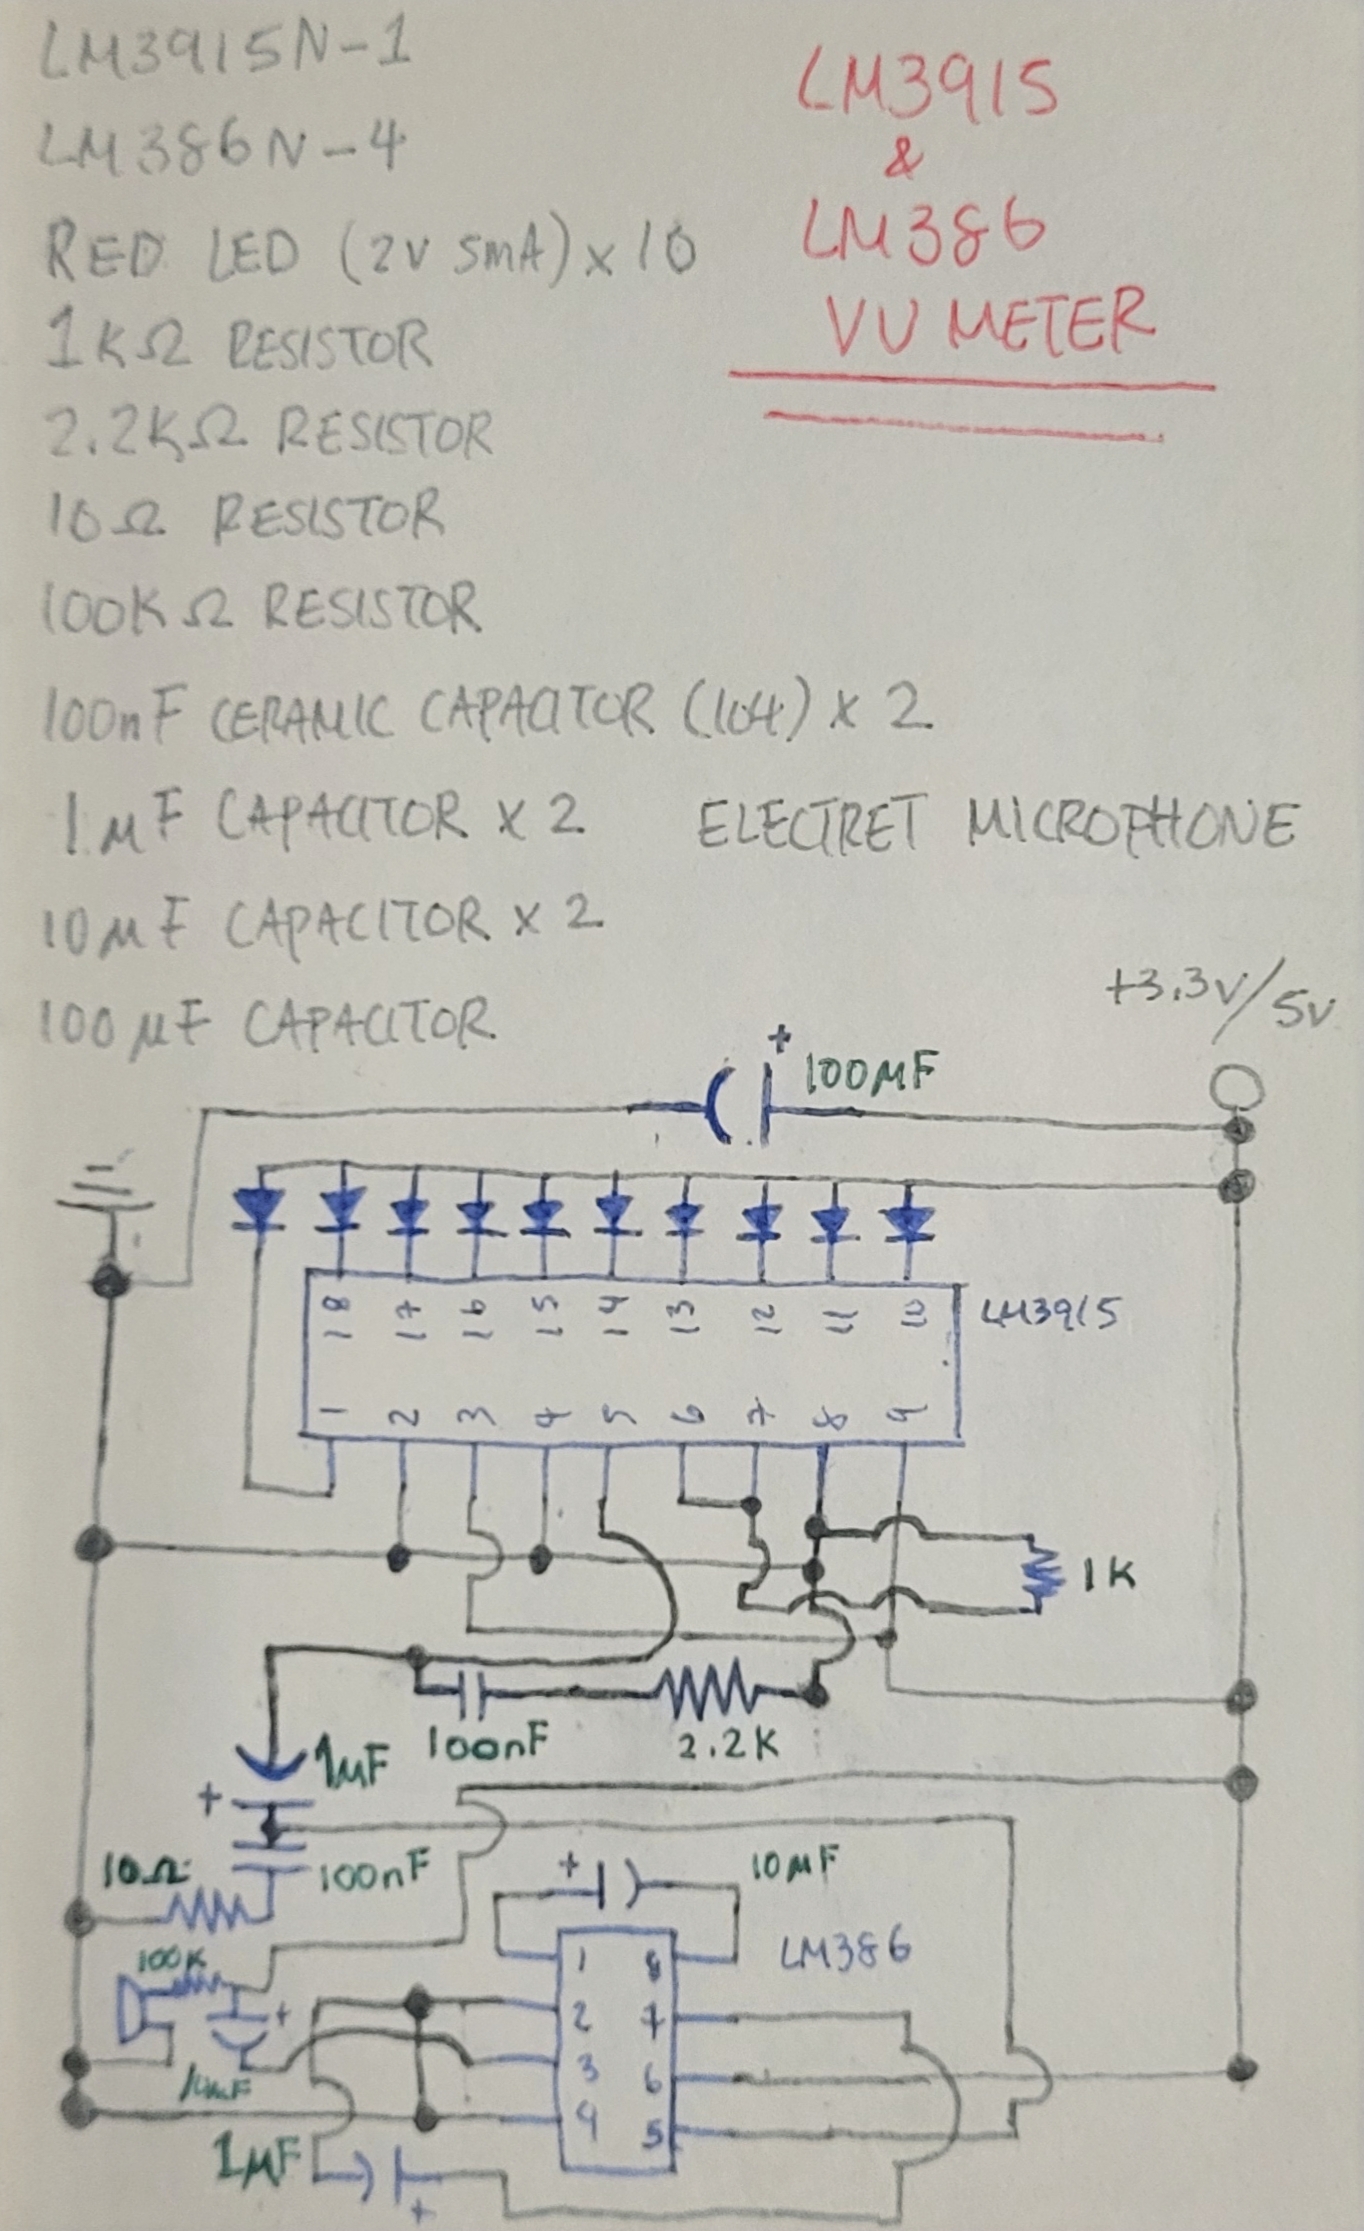 LM3915N-1
LM386N-4
RED LED (2V 5mA) x 10
1KΩ RESISTOR
2.2KΩ RESISTOR
10Ω RESISTOR
100KΩ RESISTOR
100nF CERAMIC CAPACITOR (104) x 2
1μF CAPACITOR x 2
10μF CAPACITOR x 2
100μF CAPACITOR
LM3915
&
LM386
VU METER
ELECTRET MICROPHONE
+3.3V/5V
+ 100μF
18 17 16 15 14 13 12 11 10
LM3915
1 2 3 4 5 6 7 8 9
1K
100nF
2.2K
1μF
+
10Ω
100nF
+ 10μF
LM386
100K
+
10μF
1 8
2 7
3 6
4 5
1μF
+